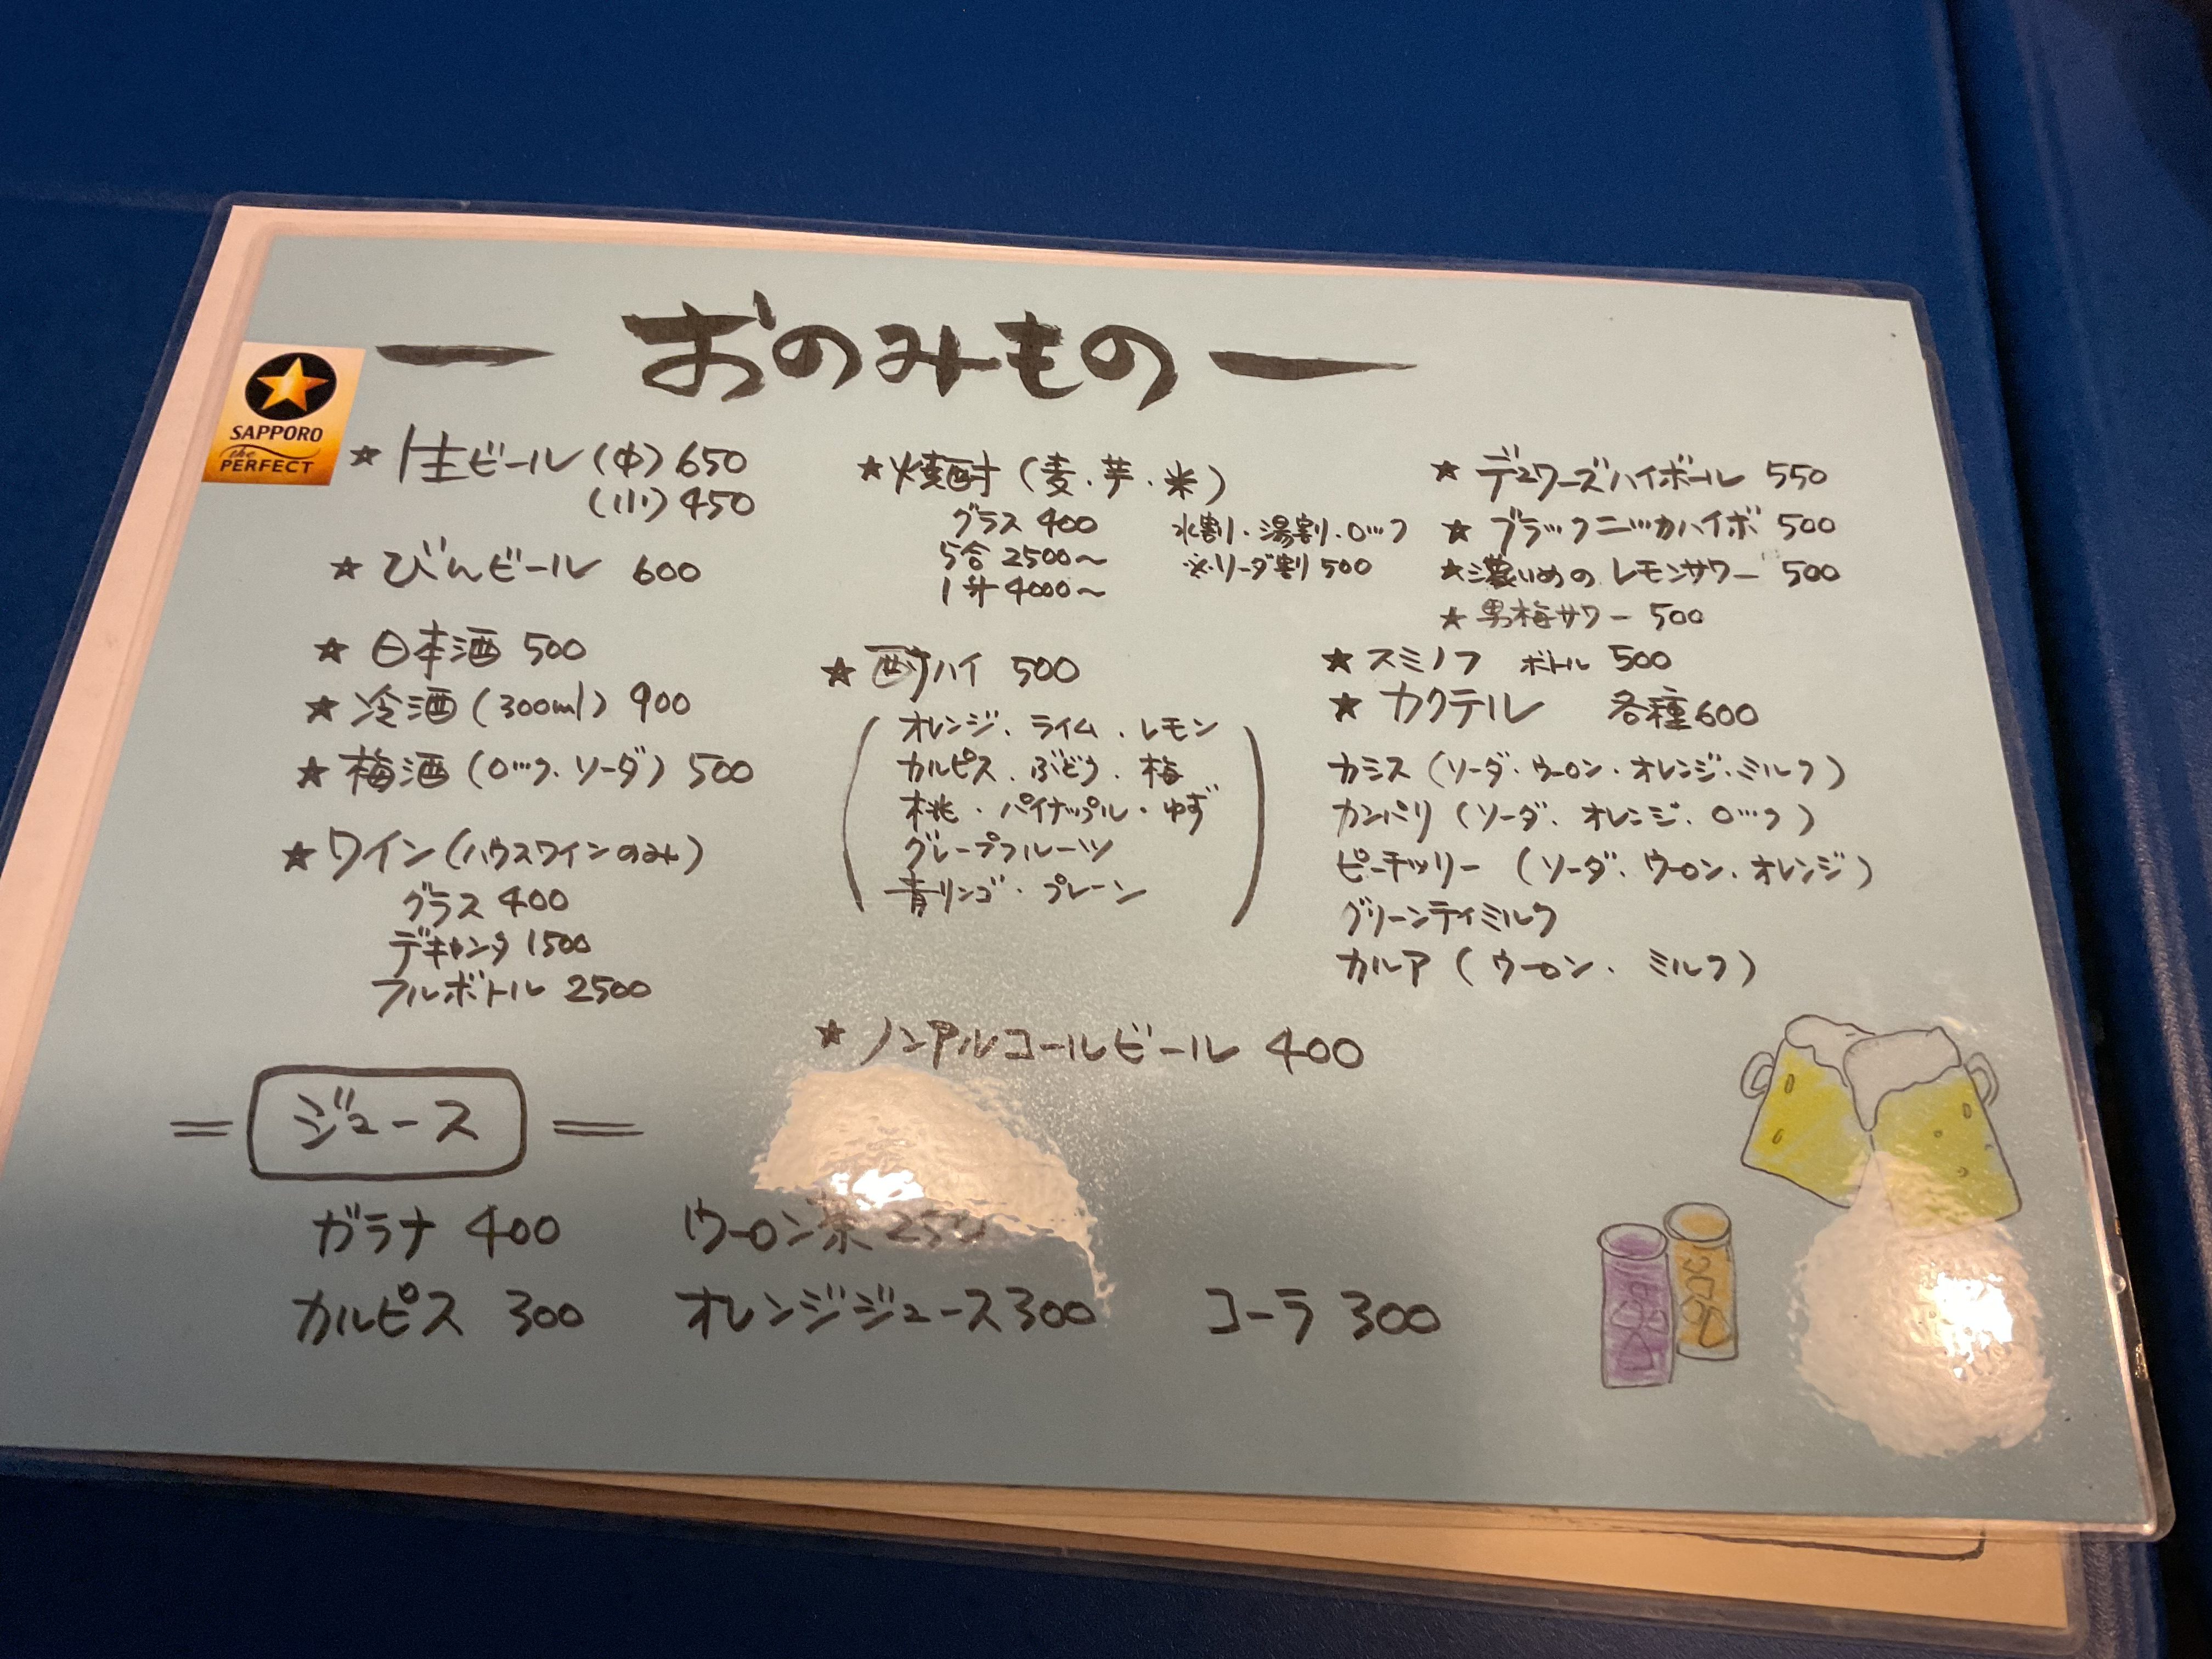 おのみもの
SAPPORO
the
PERFECT
★生ビール(中)650
(小)450
★びんビール 600
★日本酒 500
★冷酒(300ml)900
★梅酒(ロック・ソーダ)500
★ワイン(ハウスワインのみ)
グラス 400
デキャンタ 1500
フルボトル 2500
★焼酎(麦・芋・米)
グラス 400
5合 2500〜
1升 4000〜
水割・湯割・ロック
※ソーダ割 500
★酎ハイ 500
(オレンジ・ライム・レモン
カルピス・ぶどう・梅
桃・パイナップル・ゆず
グレープフルーツ
青リンゴ・プレーン)
★デュワーズハイボール 550
★ブラックニッカハイボ 500
★濃いめのレモンサワー 500
★男梅サワー 500
★スミノフ ボトル 500
★カクテル 各種600
カシス(ソーダ・ウーロン・オレンジ・ミルク)
カンパリ(ソーダ・オレンジ・ロック)
ピーチツリー(ソーダ・ウーロン・オレンジ)
グリーンティミルク
カルア(ウーロン・ミルク)
★ノンアルコールビール 400
=ジュース=
ガラナ 400 ウーロン茶 250
カルピス 300 オレンジジュース300 コーラ 300